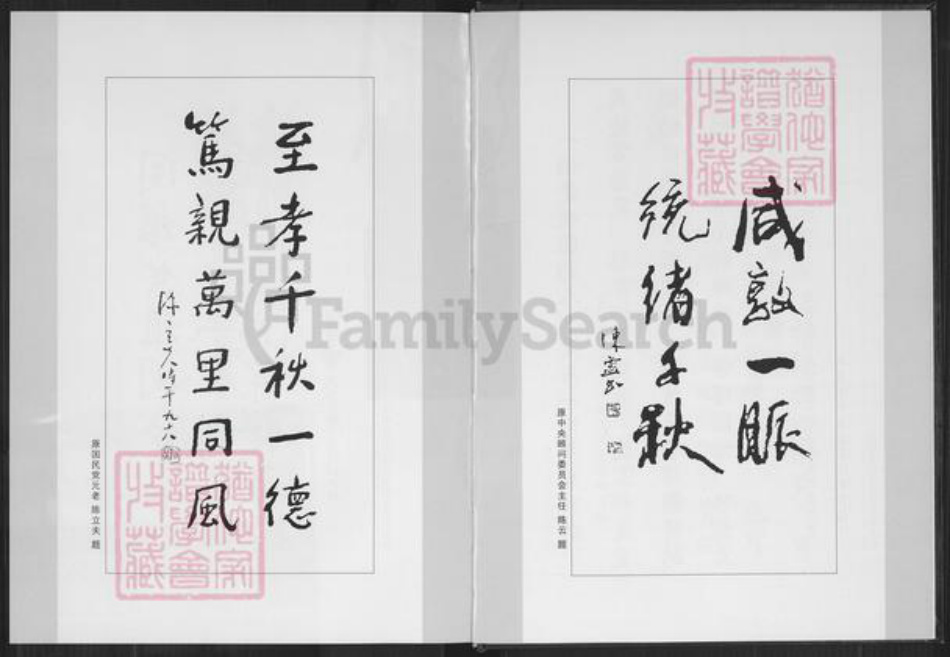 猶他家
譜學會
收藏
咸敦一脈
統緒千秋
陳雲書
原中央顾问委员会主任 陈云 题
至孝千秋一德
篤親萬里同風
陳立夫時年九十八
原国民党元老 陈立夫 题
猶他家
譜學會
收藏
FamilySearch